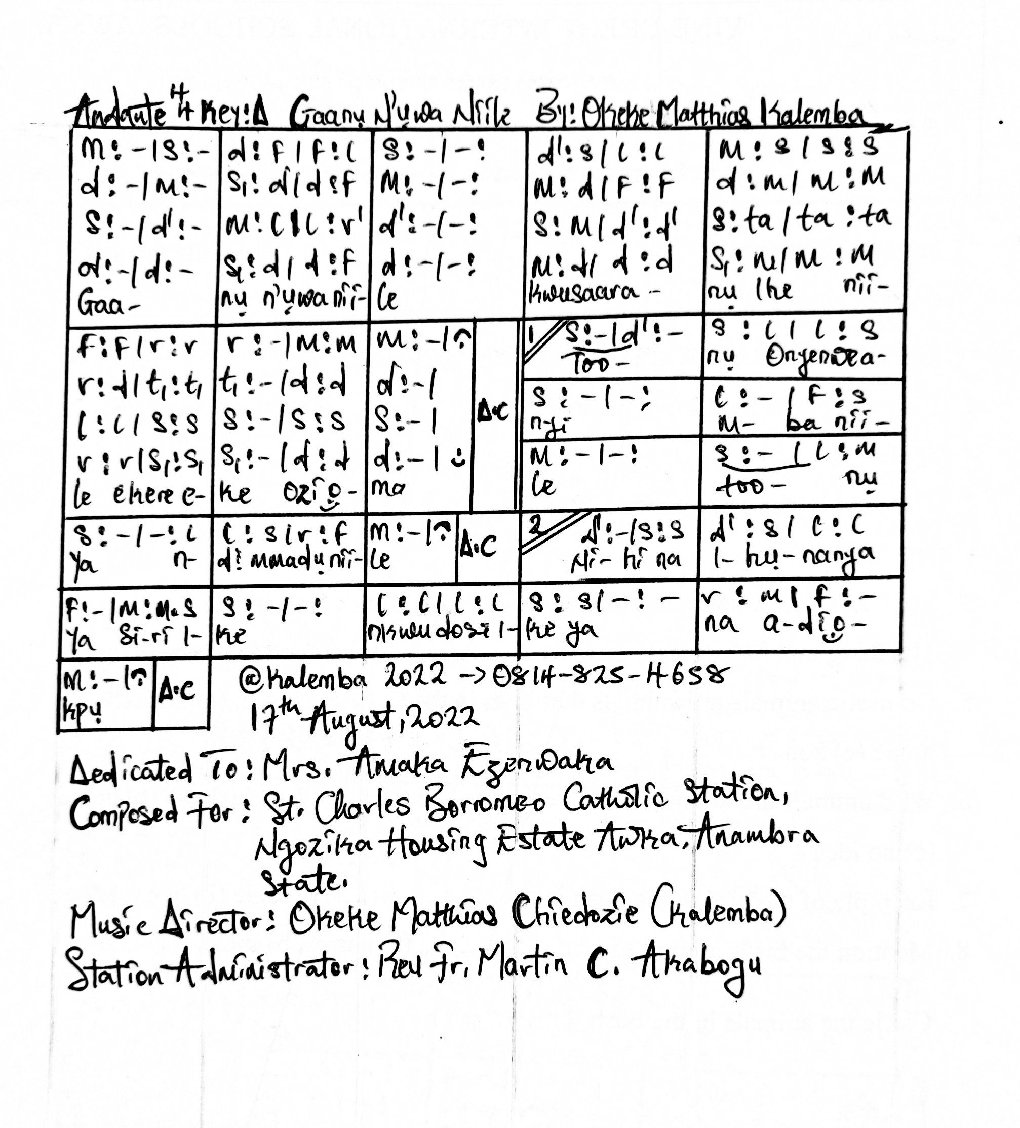 Andante 4/4 Key: D Gaanụ N'ụwa Niile By: Okeke Matthias Kalemba
m:-/s:- d:f/f:l s:-/-: d':s/l:l m:s/s:s
d:-/m:- s₁:d/d:f m:-/-: m:d/f:f d:m/m:m
s:-/d':- m:l/l:r' d':-/-: s:m/d':d' s:ta/ta:ta
d:-/d:- s₁:d/d:f d:-/-: m:d/d:d s₁:m/m:m
Gaa- nụ n'ụwa nii- le kwusaara- nụ Ihe nii-
f:f/r:r r:-/m:m m:-/ D.C 1 s:-/d':- s:l/l:s
Too- nụ Onyenwea-
r:d/t₁:t₁ t₁:-/d:d d:-/ s:-/-: l:-/f:s
nyi M- ba nii-
l:l/s:s s:-/s:s s:-/
r:r/s₁:s₁ s₁:-/d:d d:-/ m:-/-: s:-/l:m
le ekere e- ke ozio- ma le too- nụ
s:-/-:l l:s/r:f m:-/ D.C 2 d':-/s:s d':s/l:l
Ya n- dị mmadụ nii- le Ni- hi na I- hụ-nanya
f:-/m:m.s s:-/-: l:l/l:l s:s/-:- r:m/f:-
Ya si-ri I- ke nkwudosi I- ke ya na a-dịọ-
m:-/ D.C @Kalemba 2022 -> 0814-825-4658
kpụ 17th August, 2022
Dedicated To: Mrs. Amaka Ezenwaka
Composed For: St. Charles Borromeo Catholic Station,
Ngozika Housing Estate Awka, Anambra
State.
Music Director: Okeke Matthias Chiedozie (Kalemba)
Station Administrator: Rev Fr. Martin C. Akabogu